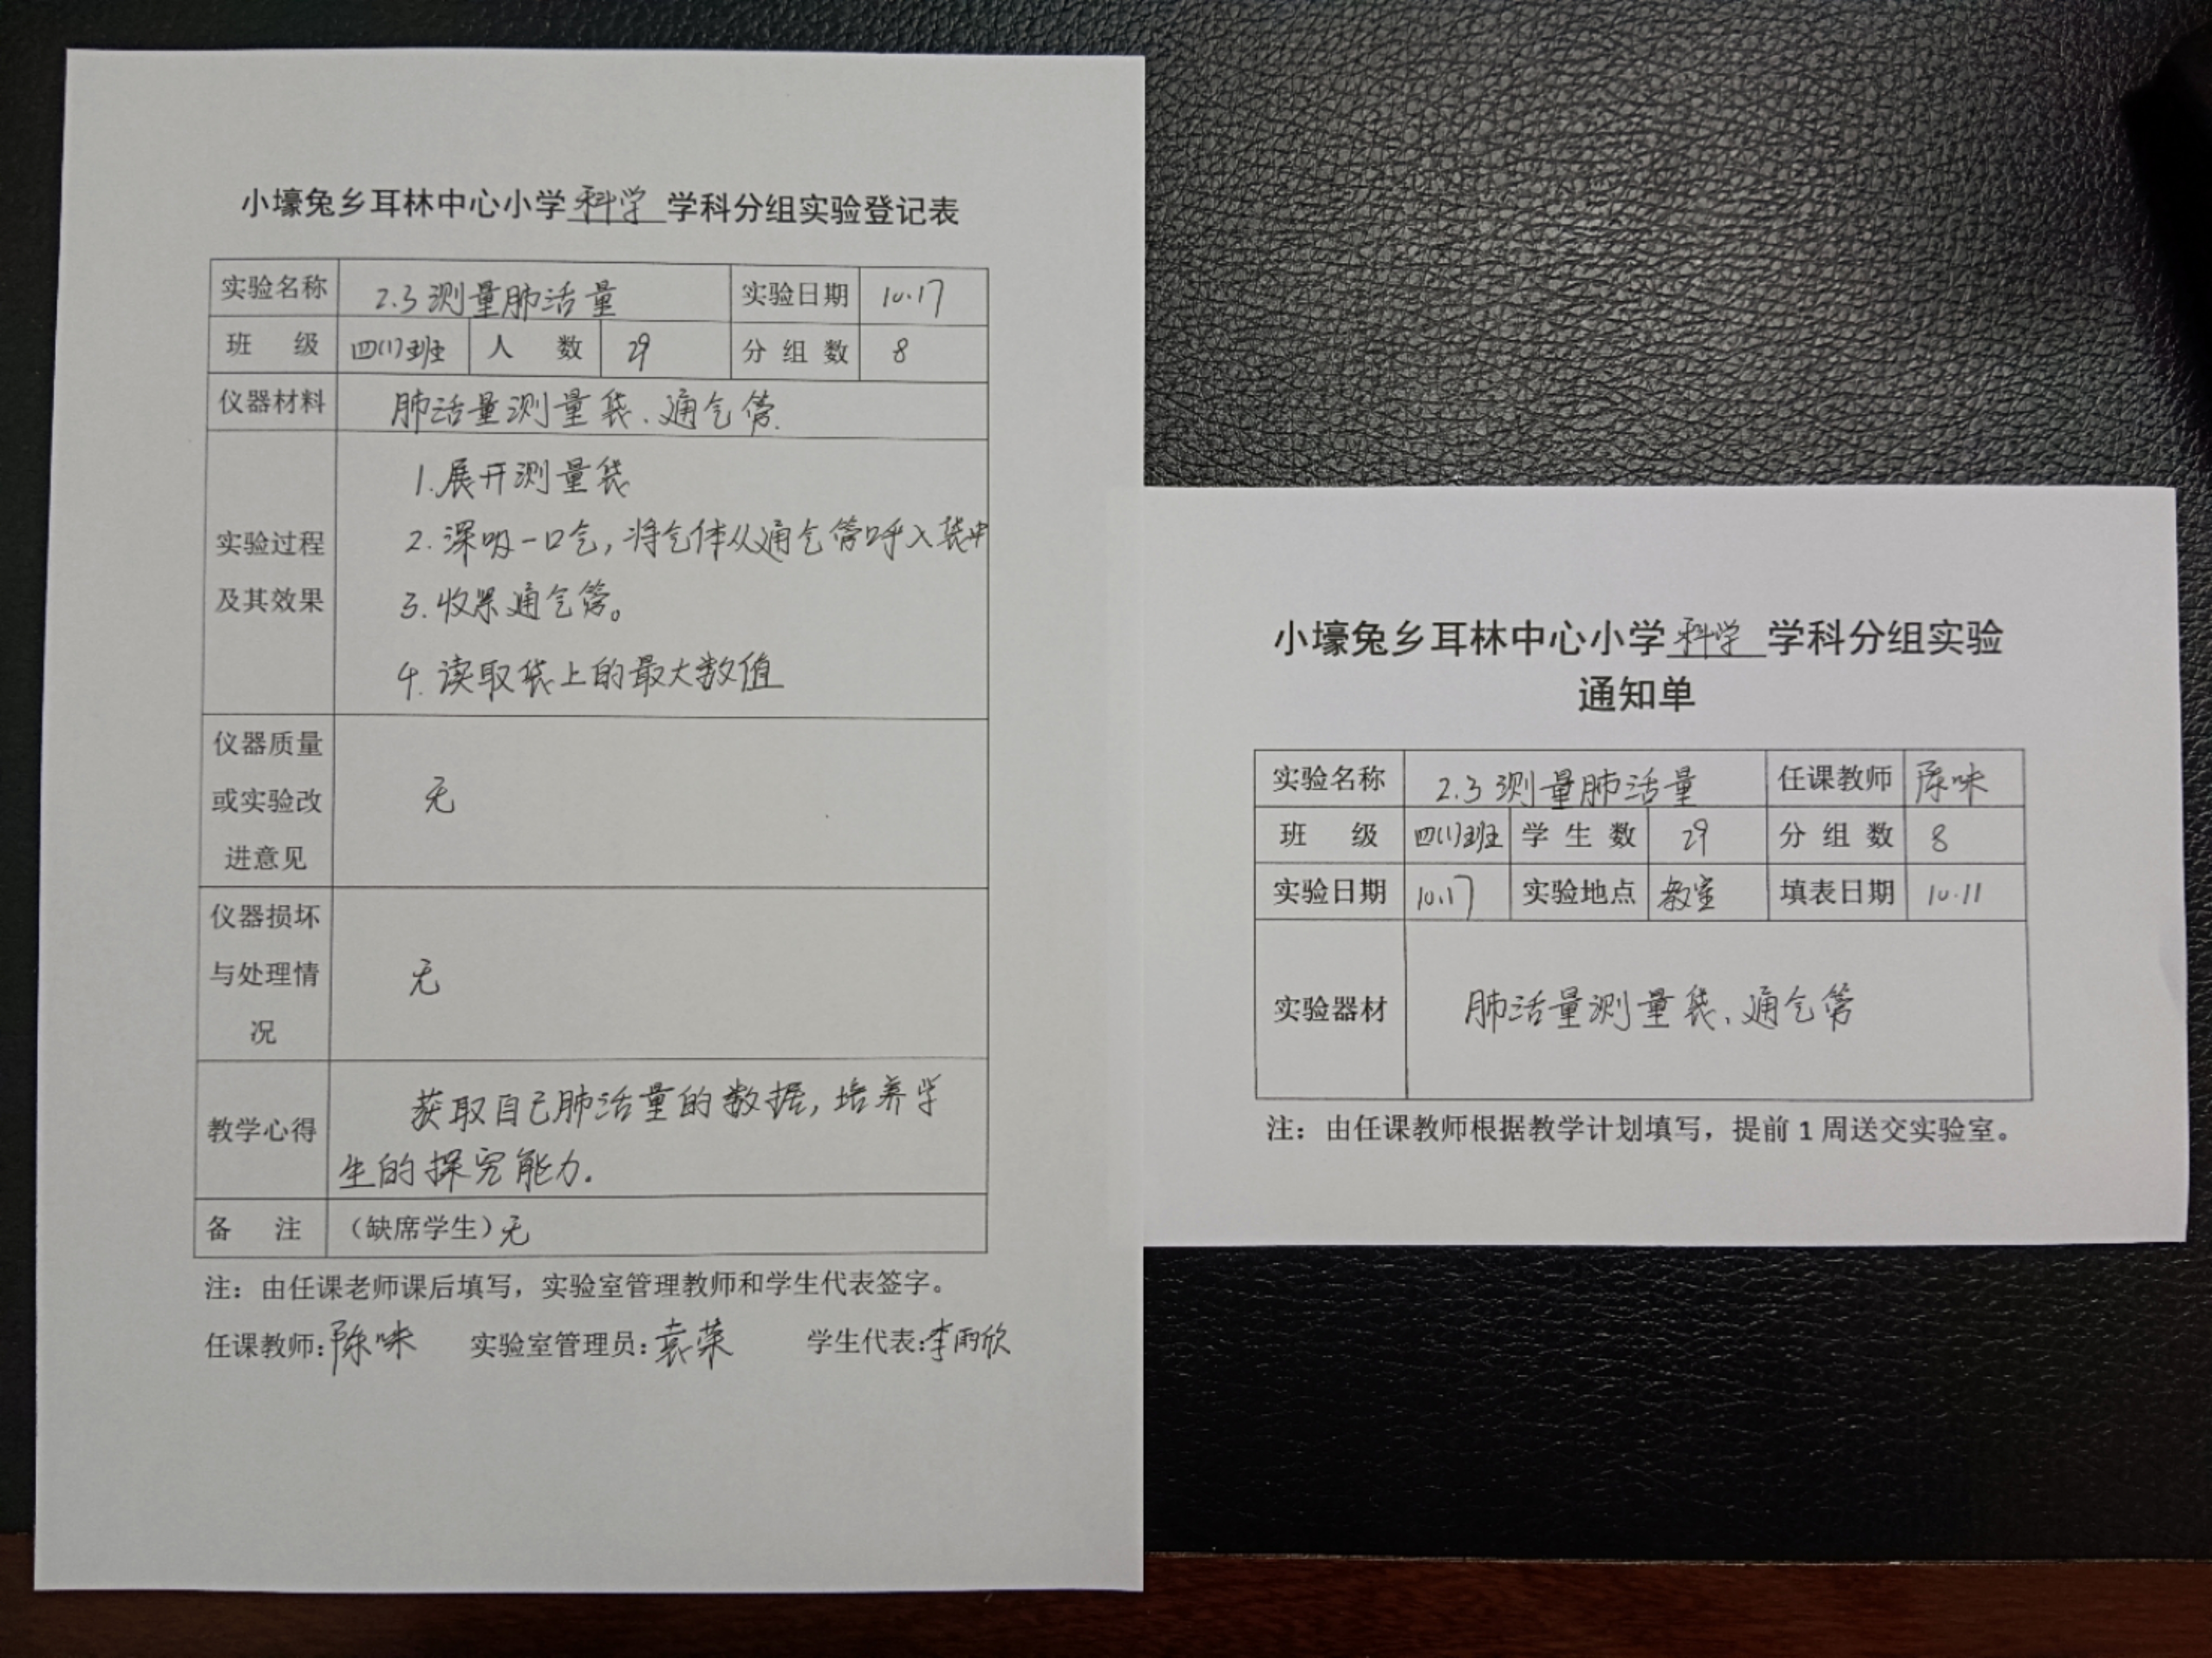 小壕兔乡耳林中心小学科学学科分组实验登记表
实验名称 2.3测量肺活量 实验日期 10.17
班 级 四(1)班 人 数 29 分组数 8
仪器材料 肺活量测量袋、通气管.
实验过程及其效果
1.展开测量袋
2.深吸一口气,将气体从通气管呼入袋中
3.收紧通气管。
4.读取袋上的最大数值
仪器质量
或实验改
进意见
无
仪器损坏
与处理情
况
无
教学心得
获取自己肺活量的数据,培养学
生的探究能力.
备 注 (缺席学生)无
注:由任课老师课后填写,实验室管理教师和学生代表签字。
任课教师:陈咏 实验室管理员:袁荣 学生代表:李雨欣
小壕兔乡耳林中心小学科学学科分组实验
通知单
实验名称 2.3测量肺活量 任课教师 陈咏
班 级 四(1)班 学生数 29 分组数 8
实验日期 10.17 实验地点 教室 填表日期 10.11
实验器材 肺活量测量袋、通气管
注:由任课教师根据教学计划填写,提前1周送交实验室。